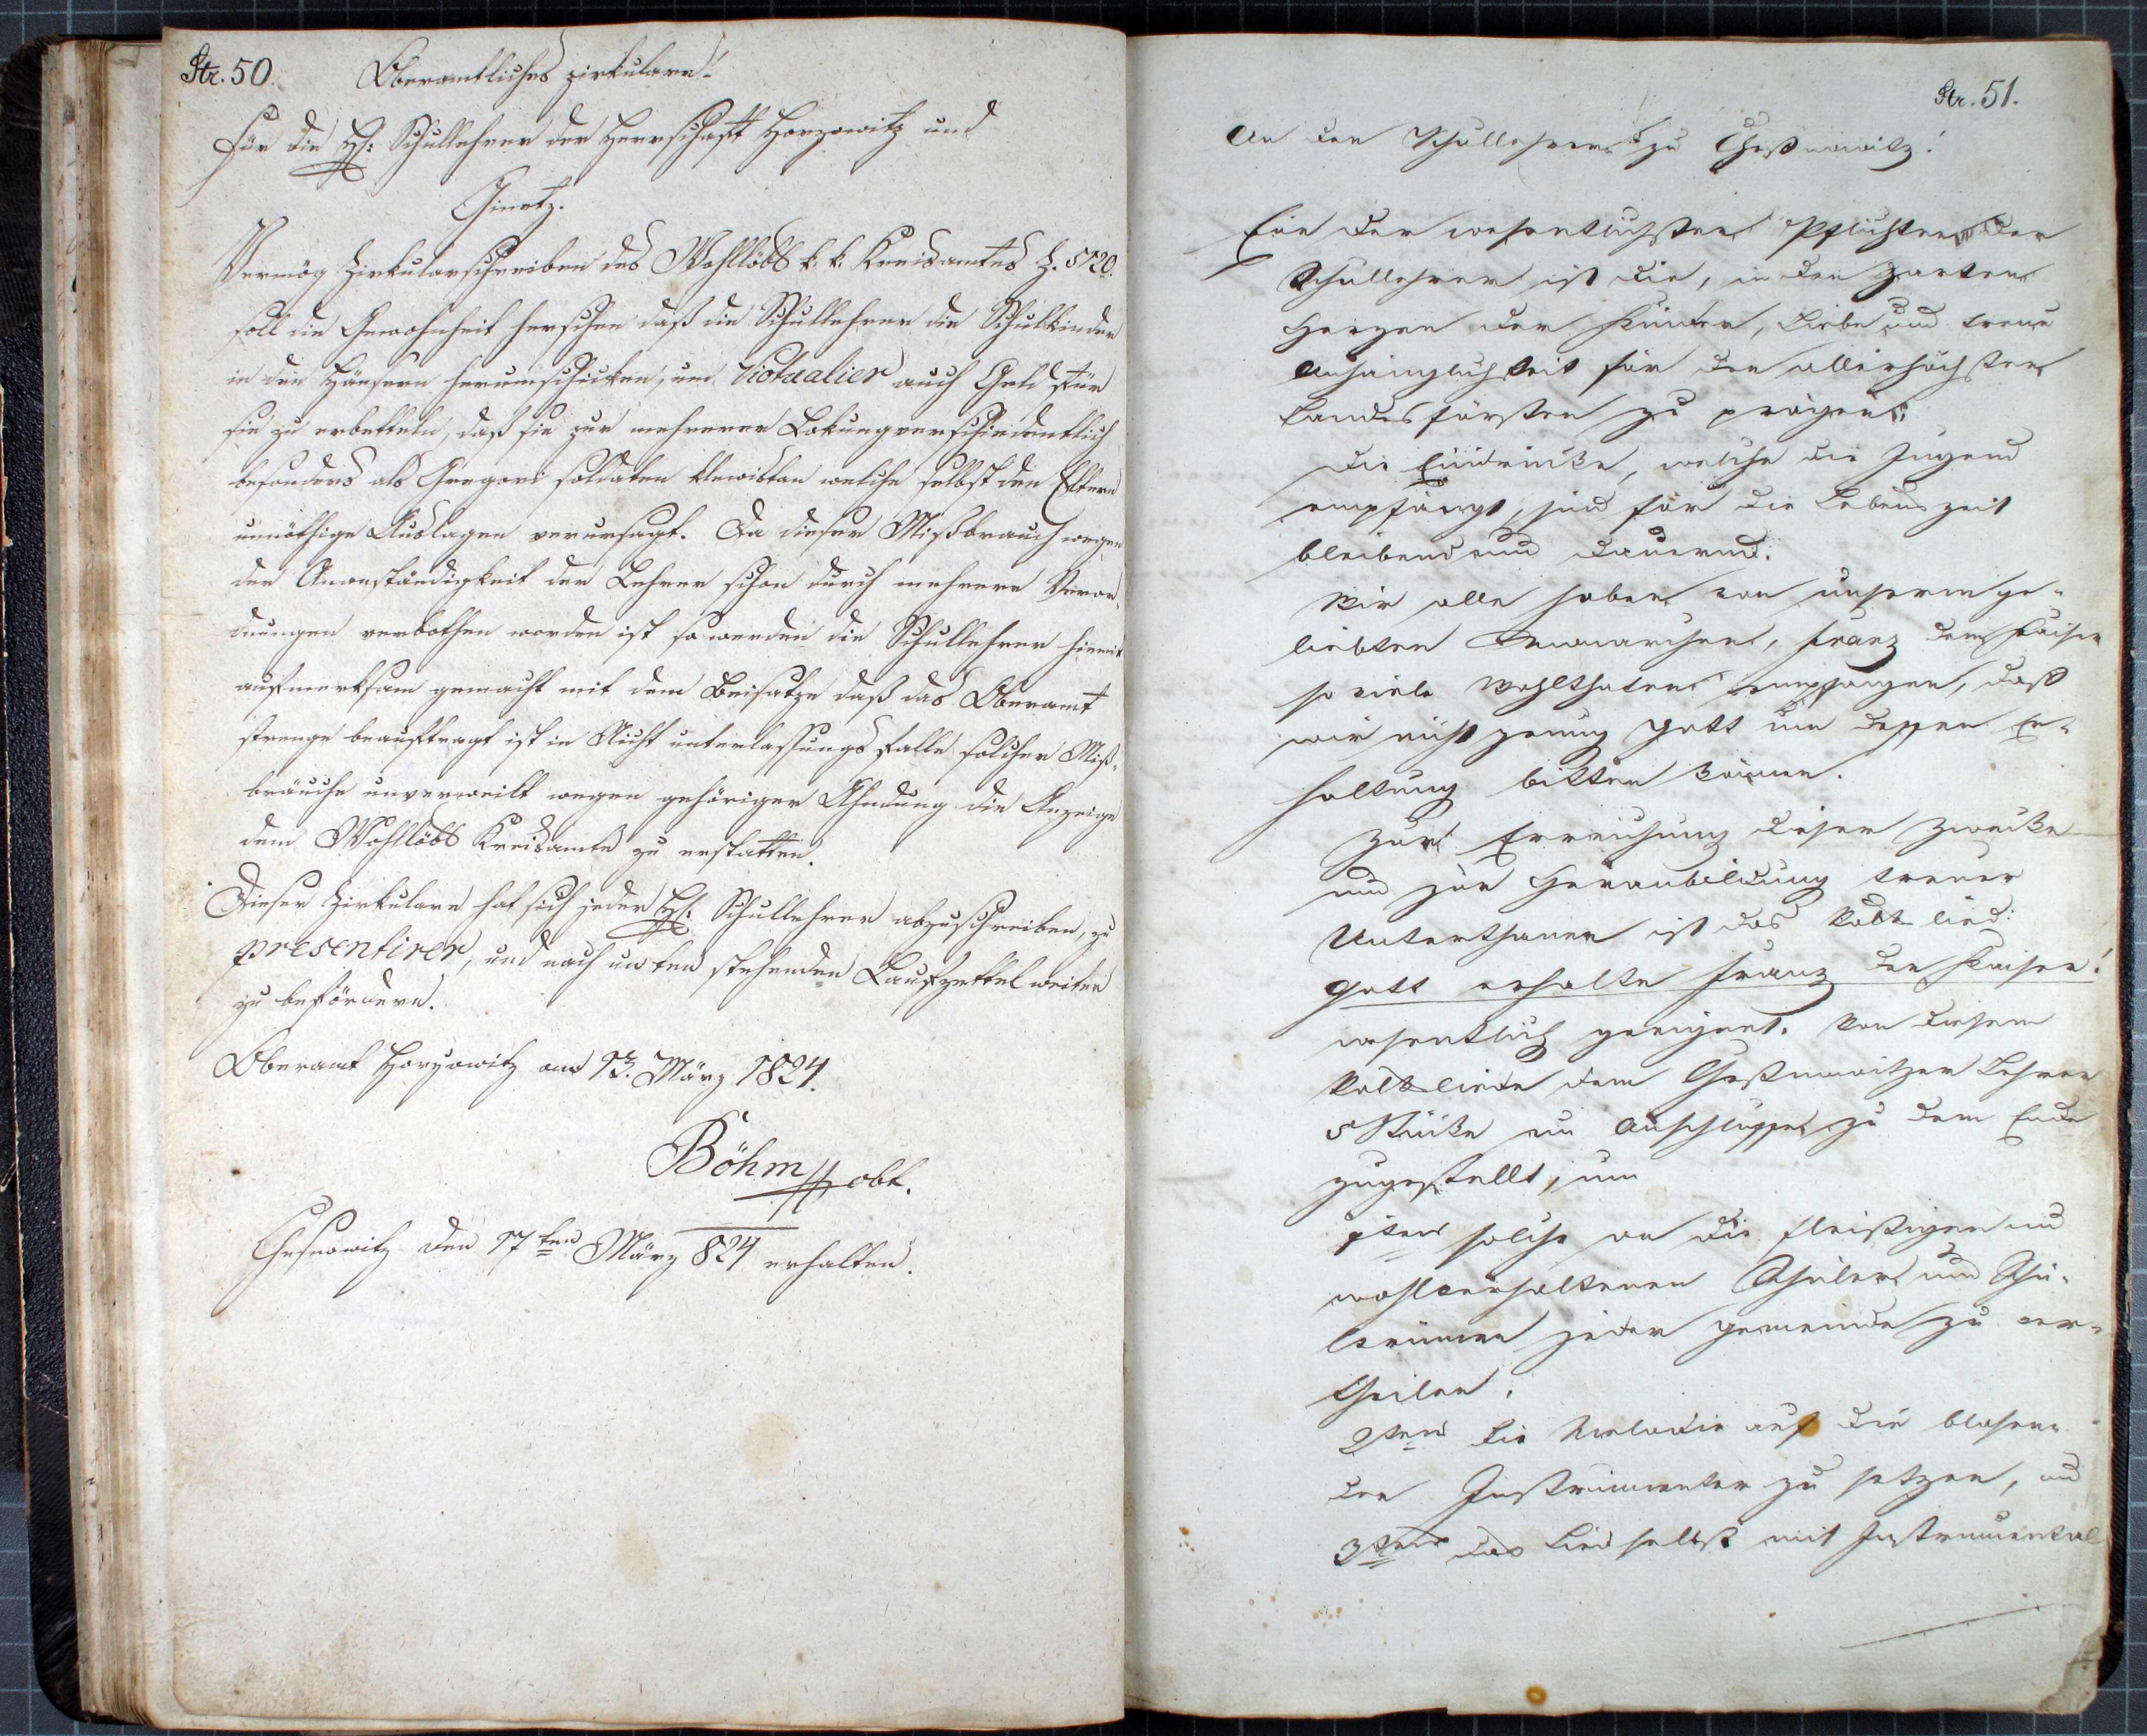 Str. 50.
Oberamtliches Zirkulare!
Für die H: Schullehrer der Herrschaft Horzowitz und
Ginetz.
Vermög Zirkularschreiben des Wohllöbl k. k. Kreisamtes Z. 5720.
soll die Gewohnheit herschen daß die Schullehrer die Schulkinder
in den Häusern herumschicken, um Victualien auch Geld für
sie zu erbetteln, daß sie zur mehrerer Lokung verschiedentlich
besonders als Gregori soldaten welche selbst den Eltern
unnöthige Auslagen verursagt. Da dieser Mißbrauch wegen
der Unanständigkeit der Lehrer schon durch mehrere Veror-
dnungen verbothen worden ist so werden die Schullehrer hiemit
aufmerksam gemacht mit dem Beisatze daß das Oberamt
strenge beauftragt ist in Nicht unterlassungs falle solcher Miß-
bräuche unverweilt wegen gehöriger Ahndung die Anzeige
dem Wohllöbl Kreisamte zu erstatten.
Dieser Zirkulare hat sich jeder H: Schullehrer abzuschreiben, zu
presentiren, und nach unten stehenden Laufzettel weiter
zu befördern.
Oberamt Horzowitz am 13. März 1824.
Böhm obt.
Chesnowitz den 17ten März 824 erhalten.
Str. 51.
An den Schullehrer zu Cheßnowitz!
Eine der wesentlichsten Pflichten der
Schullehrer ist die, in den zarten
Herzen der Kinder, Liebe und treue
Anhänglichkeit für den allerhöchsten
Landesfürsten zu prägen:
Die Eindrücke, welche die Jugend
empfängt, sind für die Lebenszeit
bleibend und dauernd.
Wir alle haben von unserem ge-
liebten Monarchen, Franz dem Kaiser
so viele Wohlthaten empfangen, daß
wir nicht genug Gott um dessen Er-
haltung bitten können.
Zur Erreichung dieser Zwecke
und zur Heranbildung treuer
Unterthanen ist das Volkslied:
Gott erhalte Franz den Kaiser!
wesentlich geeignet. Von diesem
Volksliede dem Cheßnowitzer Lehrer
5 Stücke im Anschlusse zu dem Ende
zugestellt, um
1tens solche an die fleißigen und
wohlverhaltenen Schüler und Schü-
lerinnen jeder Gemeinde zu ver-
theilen.
2tens die Melodie auf die blasen-
den Instrumenten zu setzen, und
3tens das Lied selbst mit Instrumental